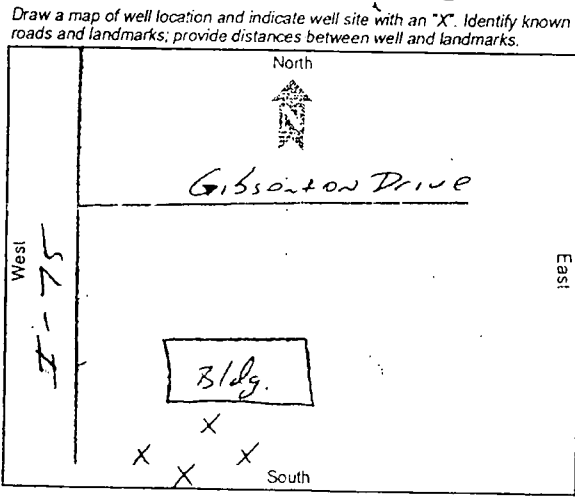 Draw a map of well location and indicate well site with an "X". Identify known
roads and landmarks; provide distances between well and landmarks.
North
N
Gibsonton Drive
West
I-75
East
Bldg.
X
X X
X
South